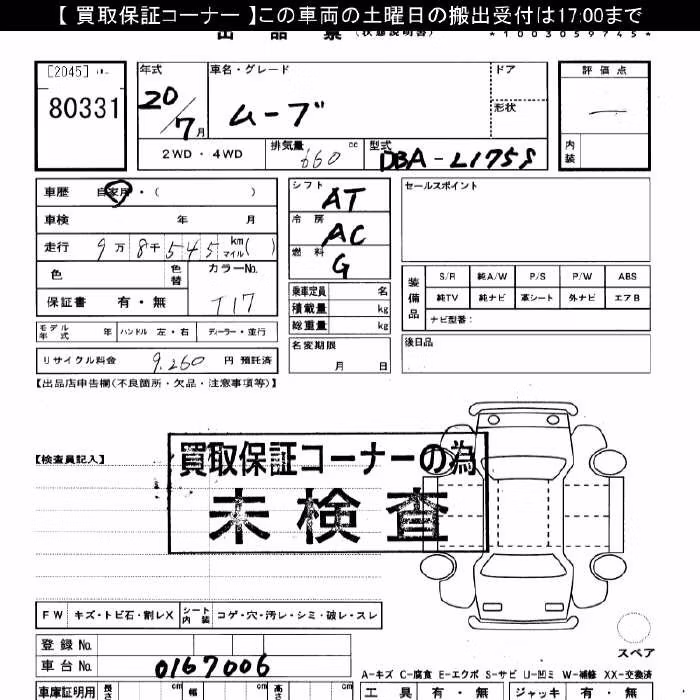 【 買取保証コーナー 】この車両の土曜日の搬出受付は17:00まで
出 品 票 (状態説明書) *1003059745*
[2045] 年式 車名・グレード ドア 評価点
80331 20/7月 ムーブ 形状 —
2WD・4WD 排気量 660 cc 型式 DBA-L175S 内装
車歴 自家用・( ) シフト AT セールスポイント
車検 年 月 冷房 AC
走行 9万8千545 km マイル( ) 燃料 G
色 色替 カラーNo. 乗車定員 名 装備品 S/R 純A/W P/S P/W ABS
保証書 有・無 T17 積載量 kg 純TV 純ナビ 革シート 外ナビ エアB
総重量 kg ナビ型番:
モデル年式 年 ハンドル 左・右 ディーラー・並行 名変期限 月 日 後日品
リサイクル料金 9,260 円 預託済
【出品店申告欄(不良箇所・欠品・注意事項等)】
【検査員記入】
買取保証コーナーの為
未検査
FW キズ・トビ石・割レX シート内装 コゲ・穴・汚レ・シミ・破レ・スレ
登録No. スペア
車台No. 0167006
A-キズ C-腐食 E-エクボ S-サビ U-凹ミ W-補修 XX-交換済
車庫証明用 長さ cm 幅 cm 高さ cm 工具 有・無 ジャッキ 有・無